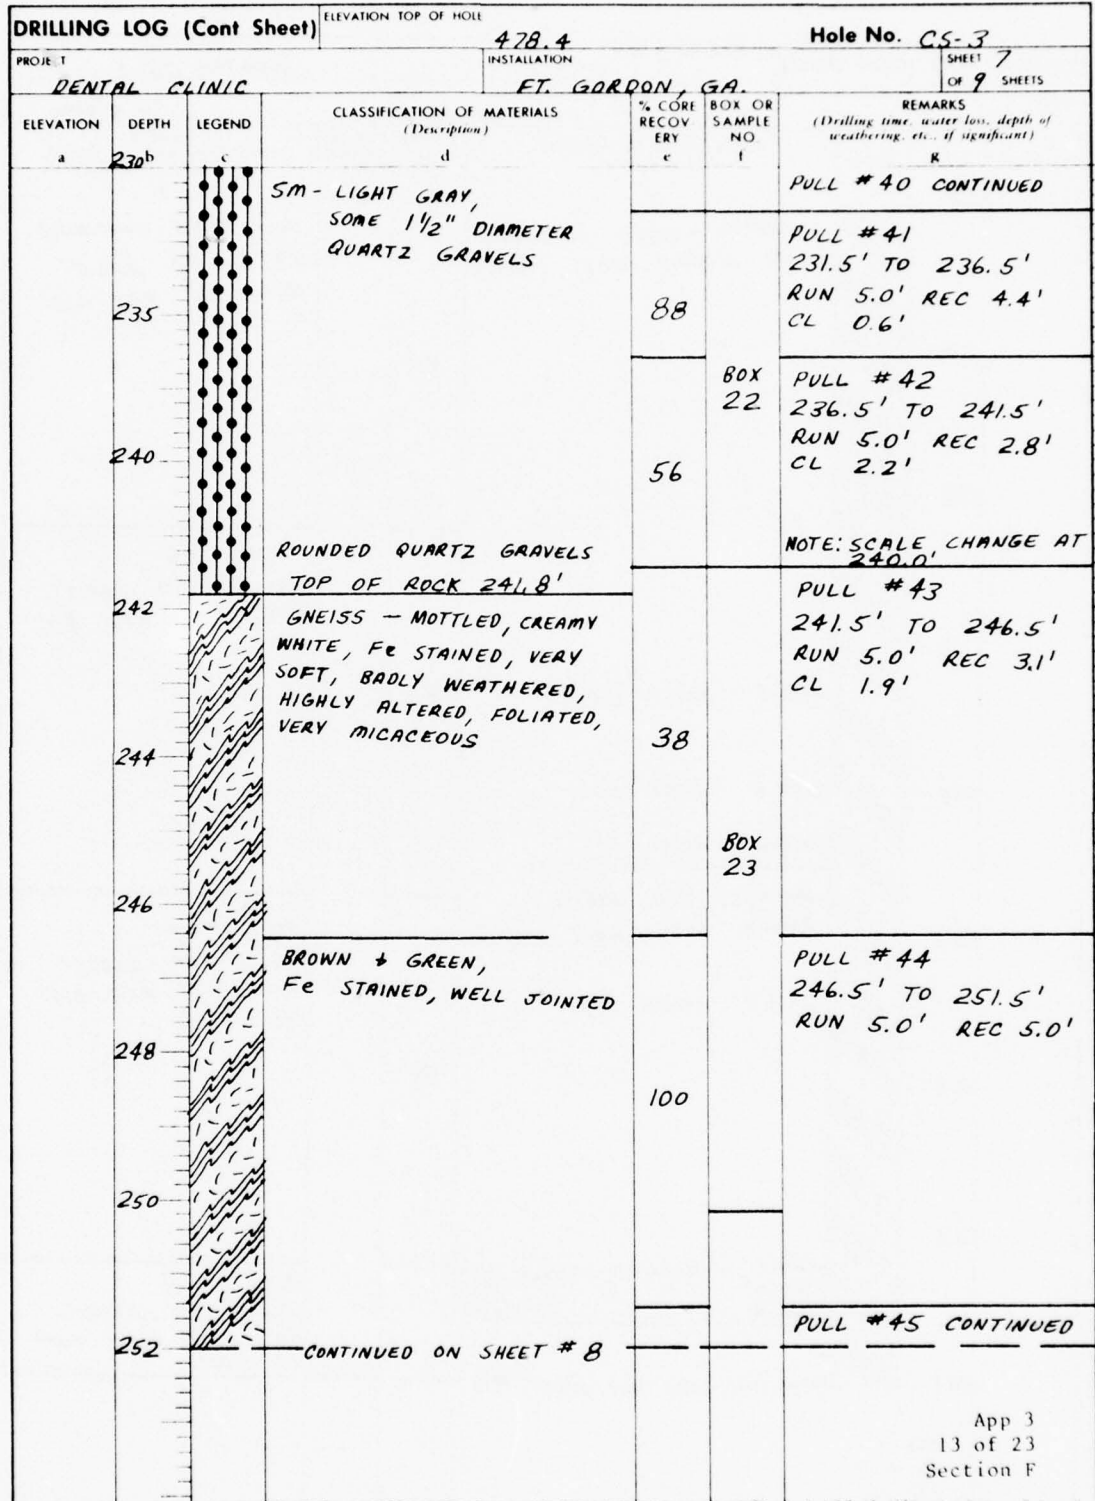 DRILLING LOG (Cont Sheet)
ELEVATION TOP OF HOLE
478.4
Hole No. CS-3
PROJE T
DENTAL CLINIC
INSTALLATION
FT. GORDON, GA.
SHEET 7
OF 9 SHEETS
ELEVATION
a
DEPTH
b
LEGEND
c
CLASSIFICATION OF MATERIALS
(Description)
d
% CORE
RECOV
ERY
e
BOX OR
SAMPLE
NO
f
REMARKS
(Drilling time, water loss, depth of
weathering, etc., if significant)
g
230
SM - LIGHT GRAY,
SOME 1 1/2" DIAMETER
QUARTZ GRAVELS
PULL #40 CONTINUED
PULL #41
231.5' TO 236.5'
RUN 5.0' REC 4.4'
CL 0.6'
235
88
BOX
22
PULL #42
236.5' TO 241.5'
RUN 5.0' REC 2.8'
CL 2.2'
240
56
NOTE: SCALE CHANGE AT
240.0'
ROUNDED QUARTZ GRAVELS
TOP OF ROCK 241.8'
242
GNEISS — MOTTLED, CREAMY
WHITE, Fe STAINED, VERY
SOFT, BADLY WEATHERED,
HIGHLY ALTERED, FOLIATED,
VERY MICACEOUS
PULL #43
241.5' TO 246.5'
RUN 5.0' REC 3.1'
CL 1.9'
38
244
BOX
23
246
BROWN & GREEN,
Fe STAINED, WELL JOINTED
PULL #44
246.5' TO 251.5'
RUN 5.0' REC 5.0'
248
100
250
PULL #45 CONTINUED
252
CONTINUED ON SHEET #8
App 3
13 of 23
Section F